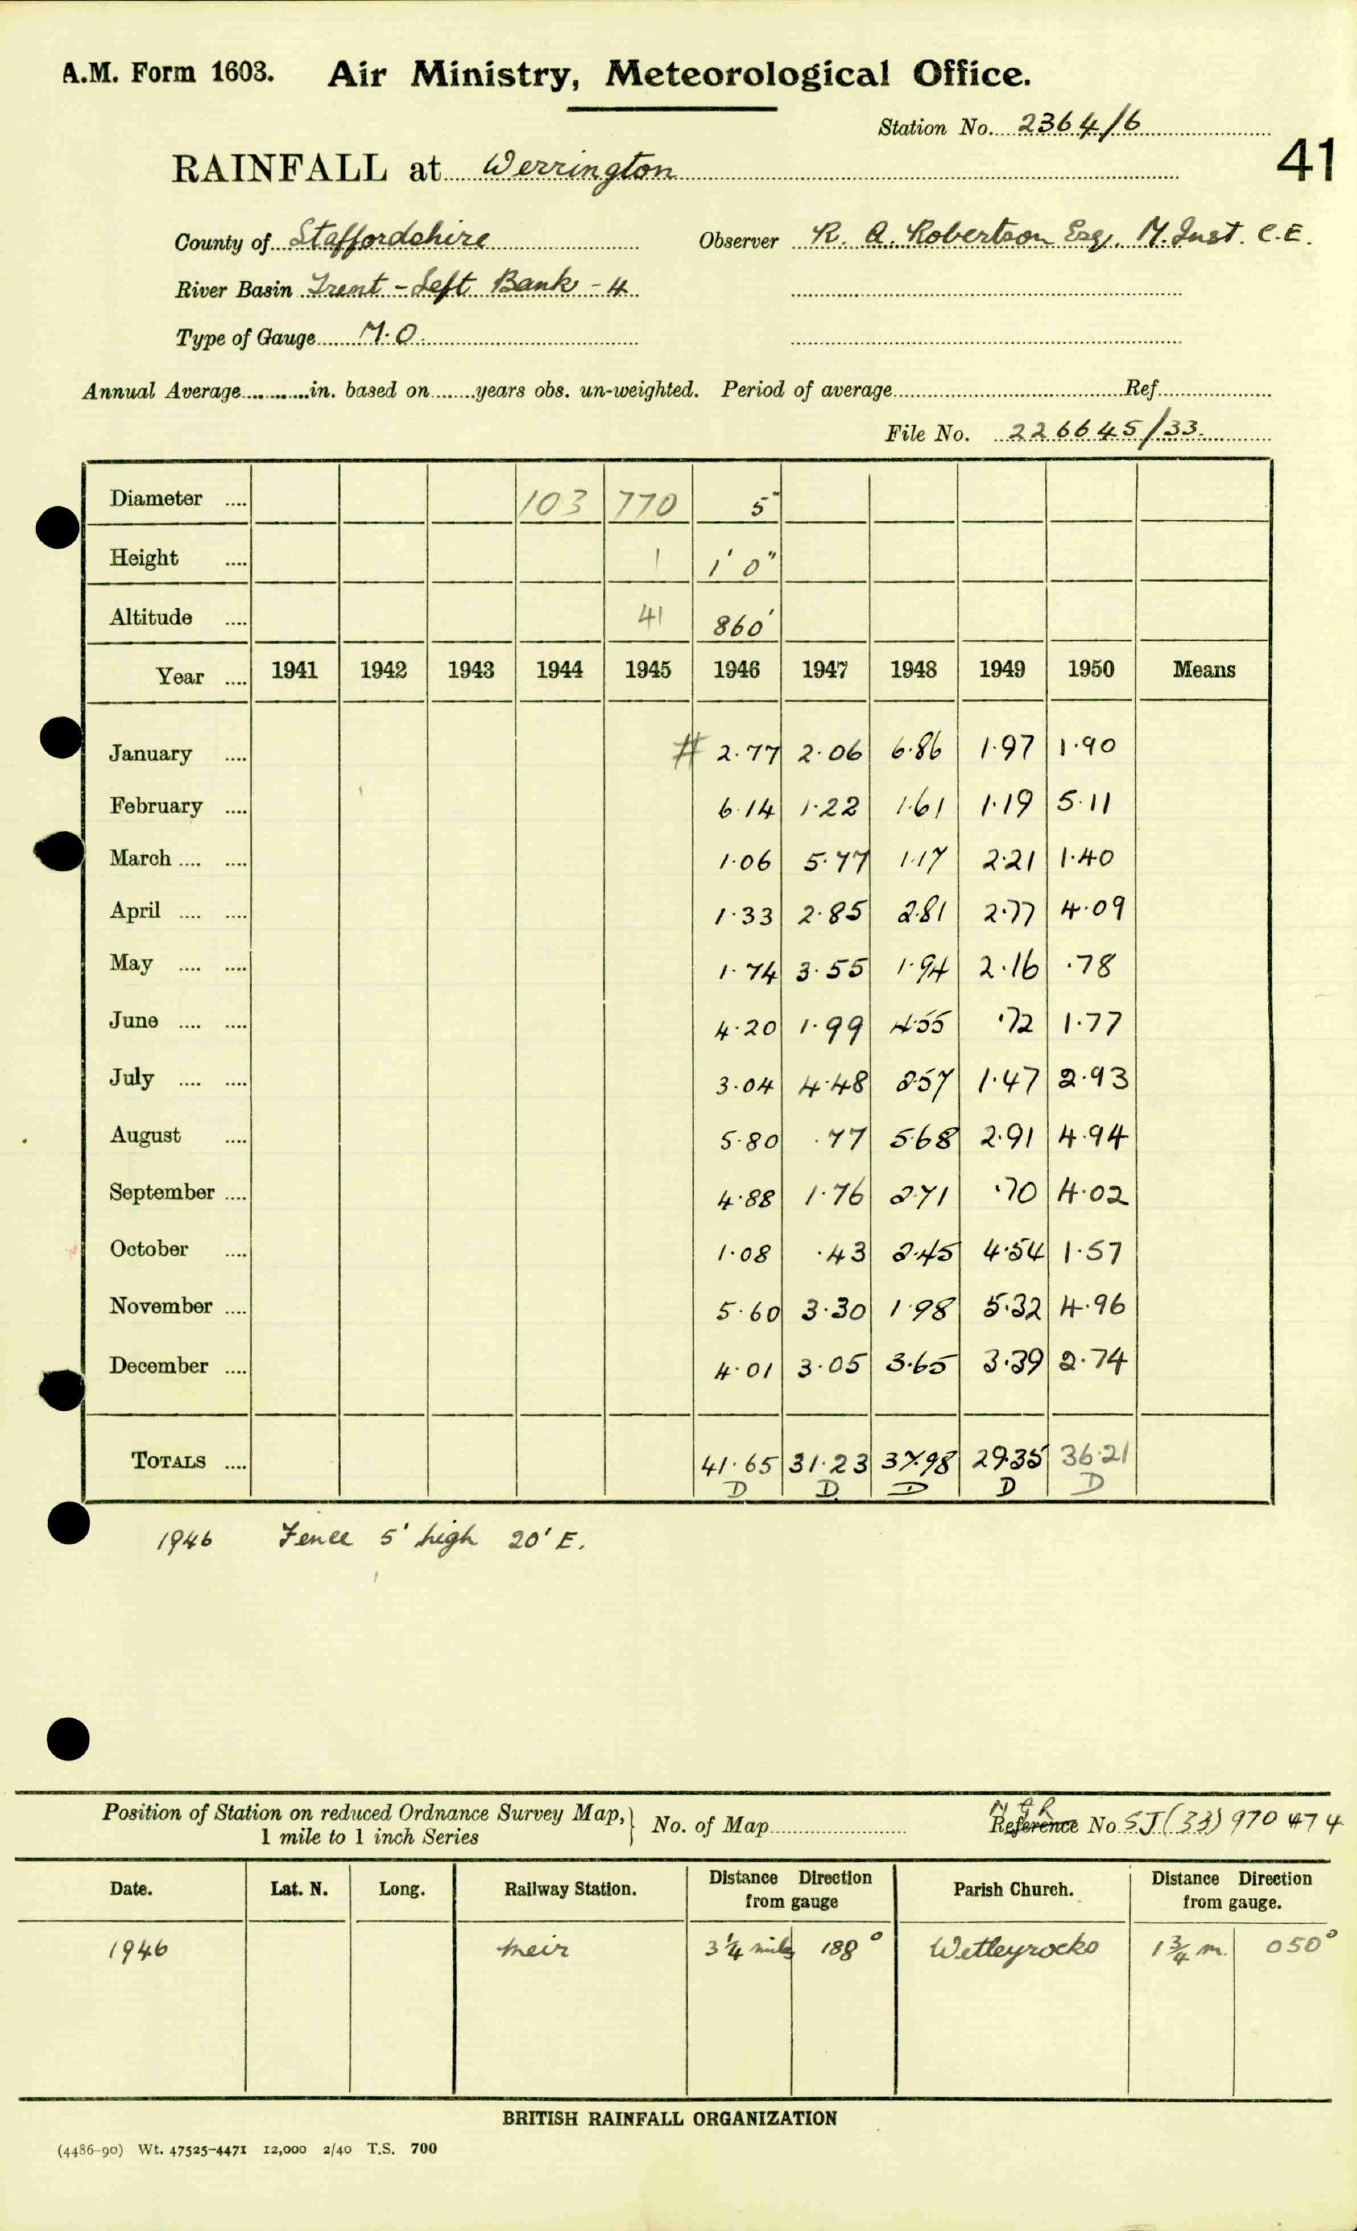 A.M. Form 1603. Air Ministry, Meteorological Office.
Station No. 2364/6
41
RAINFALL at Werrington
County of Staffordshire Observer R. A. Robertson Esq. M.Inst. C.E.
River Basin Trent - Left Bank - 4
Type of Gauge M.O.
Annual Average in. based on years obs. un-weighted. Period of average Ref
File No. 226645/33.
Diameter 103 770 5"
Height 1 1' 0"
Altitude 41 860'
Year 1941 1942 1943 1944 1945 1946 1947 1948 1949 1950 Means
January # 2.77 2.06 6.86 1.97 1.90
February 6.14 1.22 1.61 1.19 5.11
March 1.06 5.77 1.17 2.21 1.40
April 1.33 2.85 2.81 2.77 4.09
May 1.74 3.55 1.94 2.16 .78
June 4.20 1.99 4.55 .72 1.77
July 3.04 4.48 2.57 1.47 2.93
August 5.80 .77 5.68 2.91 4.94
September 4.88 1.76 2.71 .70 4.02
October 1.08 .43 2.45 4.54 1.57
November 5.60 3.30 1.98 5.32 4.96
December 4.01 3.05 3.65 3.39 2.74
TOTALS 41.65 31.23 37.98 29.35 36.21
D D D D D
1946 Fence 5' high 20' E.
Position of Station on reduced Ordnance Survey Map,
1 mile to 1 inch Series
No. of Map
N G R
Reference No SJ (33) 970 474
Date. Lat. N. Long. Railway Station. Distance from gauge Direction Parish Church. Distance Direction from gauge.
1946 Meir 3 1/4 miles 188° Wetleyrocks 1 3/4 m. 050°
BRITISH RAINFALL ORGANIZATION
(4486-90) Wt. 47525-4471 12,000 2/40 T.S. 700